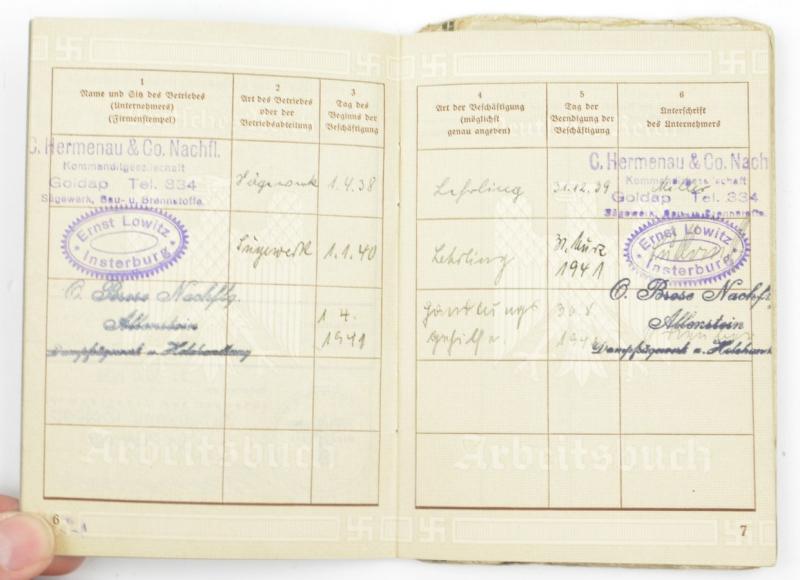 1
Name und Sitz des Betriebes
(Unternehmers)
(Firmenstempel)
2
Art des Betriebes
oder der
Betriebsabteilung
3
Tag des
Beginns der
Beschäftigung
C. Hermenau & Co. Nachfl.
Kommanditgesellschaft
Goldap Tel. 334
Sägewerk, Bau- u. Brennstoffe.
Sägewerk
1.4.38
Ernst Lowitz
Insterburg
Sägewerk
1.1.40
O. Brose Nachflg.
Allenstein
Dampfsägewerk u. Holzhandlung
1 4.
1941
Arbeitsbuch
6
4
Art der Beschäftigung
(möglichst
genau angeben)
5
Tag der
Beendigung der
Beschäftigung
6
Unterschrift
des Unternehmers
Lehrling
31.12.39
C. Hermenau & Co. Nach
Kommanditgesellschaft
Goldap Tel. 334
Sägewerk, Bau- u. Brennstoffe.
Lehrling
31. März
1941
Ernst Lowitz
Insterburg
Handlungs
gehilfe
30.8
O. Brose Nachfl
Allenstein
Dampfsägewerk u. Holzhan
Arbeitsbuch
7